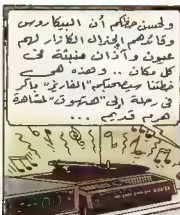 ولحسن حظكم أن البيكاروس
وقائدهم الجنرال الكازار لهم
عيون وآذان منبثة فى
كل مكان .. وهذه هى
خطتنا سيصحبكم "الفاريز" باكر
فى رحلة إلى لمشاهدة
هرم قديم ...